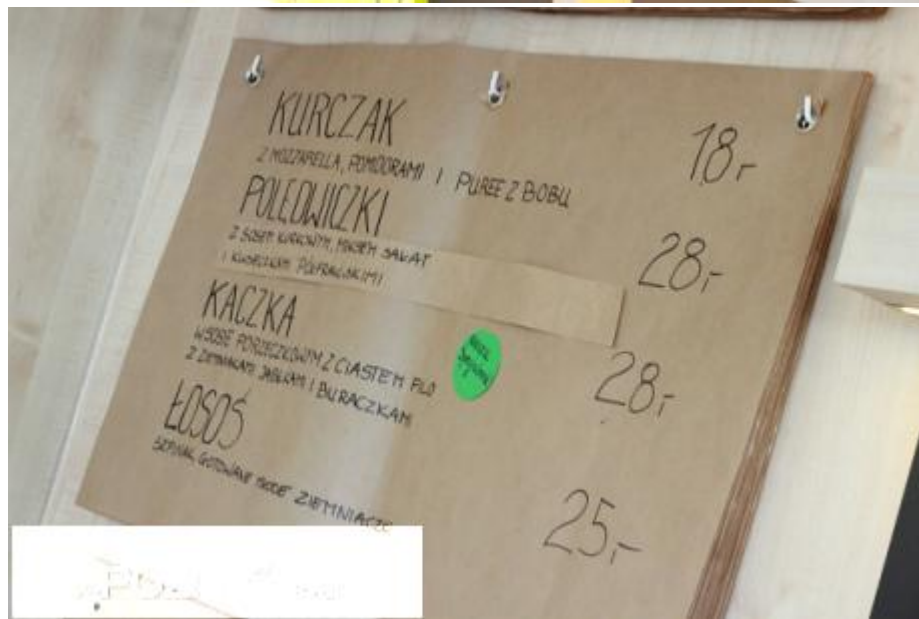 KURCZAK 18,-
Z MOZZARELLA, POMIDORAMI I PUREE Z BOBU
POLĘDWICZKI 28,-
Z SOSEM KURKOWYM, MIKSEM SAŁAT
I
KACZKA 28,-
W SOSIE PORZECZKOWYM Z CIASTEM FILO
Z ZIEMNIAKAMI JABŁKAMI I BURACZKAMI
ŁOSOŚ 25,-
SZPINAK, GOTOWANE MŁODE ZIEMNIACZKI